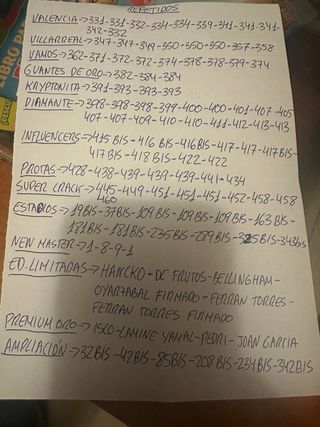 REPETIDOS
VALENCIA→331-331-332-334-334-339-341-341-341-
342-332
VILLARREAL→347-347-349-350-350-350-357-358
VAMOS→362-371-372-372-374-378-378-379-374
GUANTES DE ORO→382-384-384
KRYPTONITA→391-393-393-393
DIAMANTE→398-398-398-399-400-400-401-407-405
407-407-409-410-410-411-412-413-413
INFLUENCERS→415 BIS-416 BIS-416BIS-417-417-417BIS-
417BIS-418 BIS-422-422
PROTAS→428-438-439-439-439-441-434
SUPER CRACK→445-449-451-451-451-452-458-458
460
ESTADIOS→19BIS-37BIS-109BIS-109BIS-109BIS-163BIS-
181BIS-181BIS-235BIS-289BIS-325BIS-343BIS
NEW MASTER→1-8-9-1
ED. LIMITADAS→HANCKO-DE FRUTOS-BELLINGHAM-
OYARZABAL FIRMADO-FERRAN TORRES-
FERRAN TORRES FIRMADO
PREMIUM ORO→ISCO-LAMINE YAMAL-PEDRI-JOAN GARCIA
AMPLIACIÓN→32BIS-42BIS-85BIS-208BIS-234BIS-342BIS